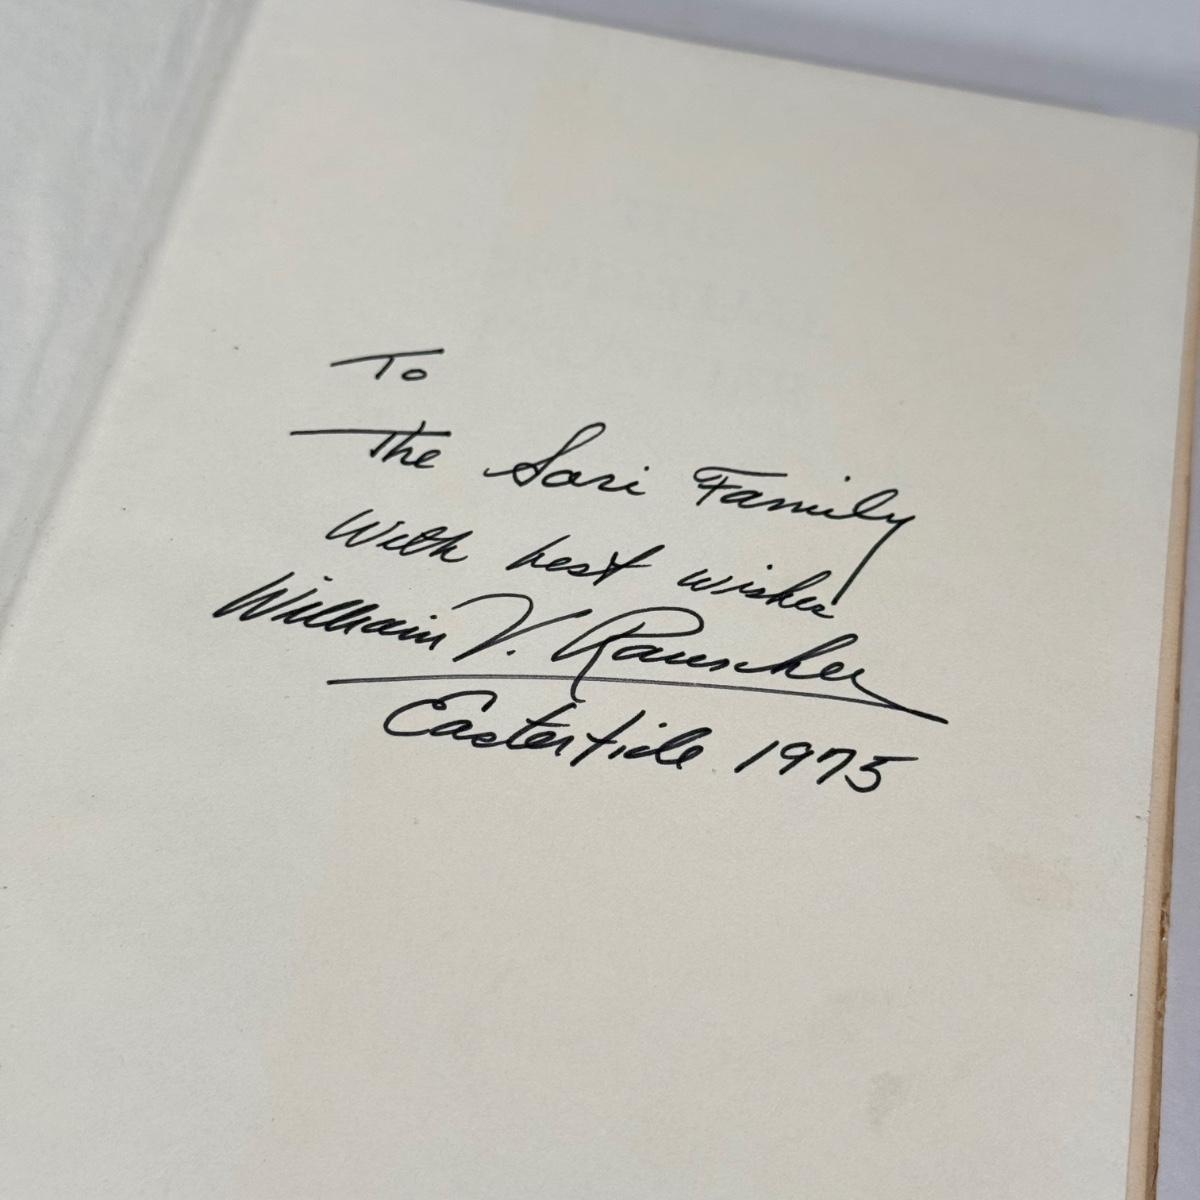 To
The Sari Family
With best wishes
William V. Rauscher
Eastertide 1975